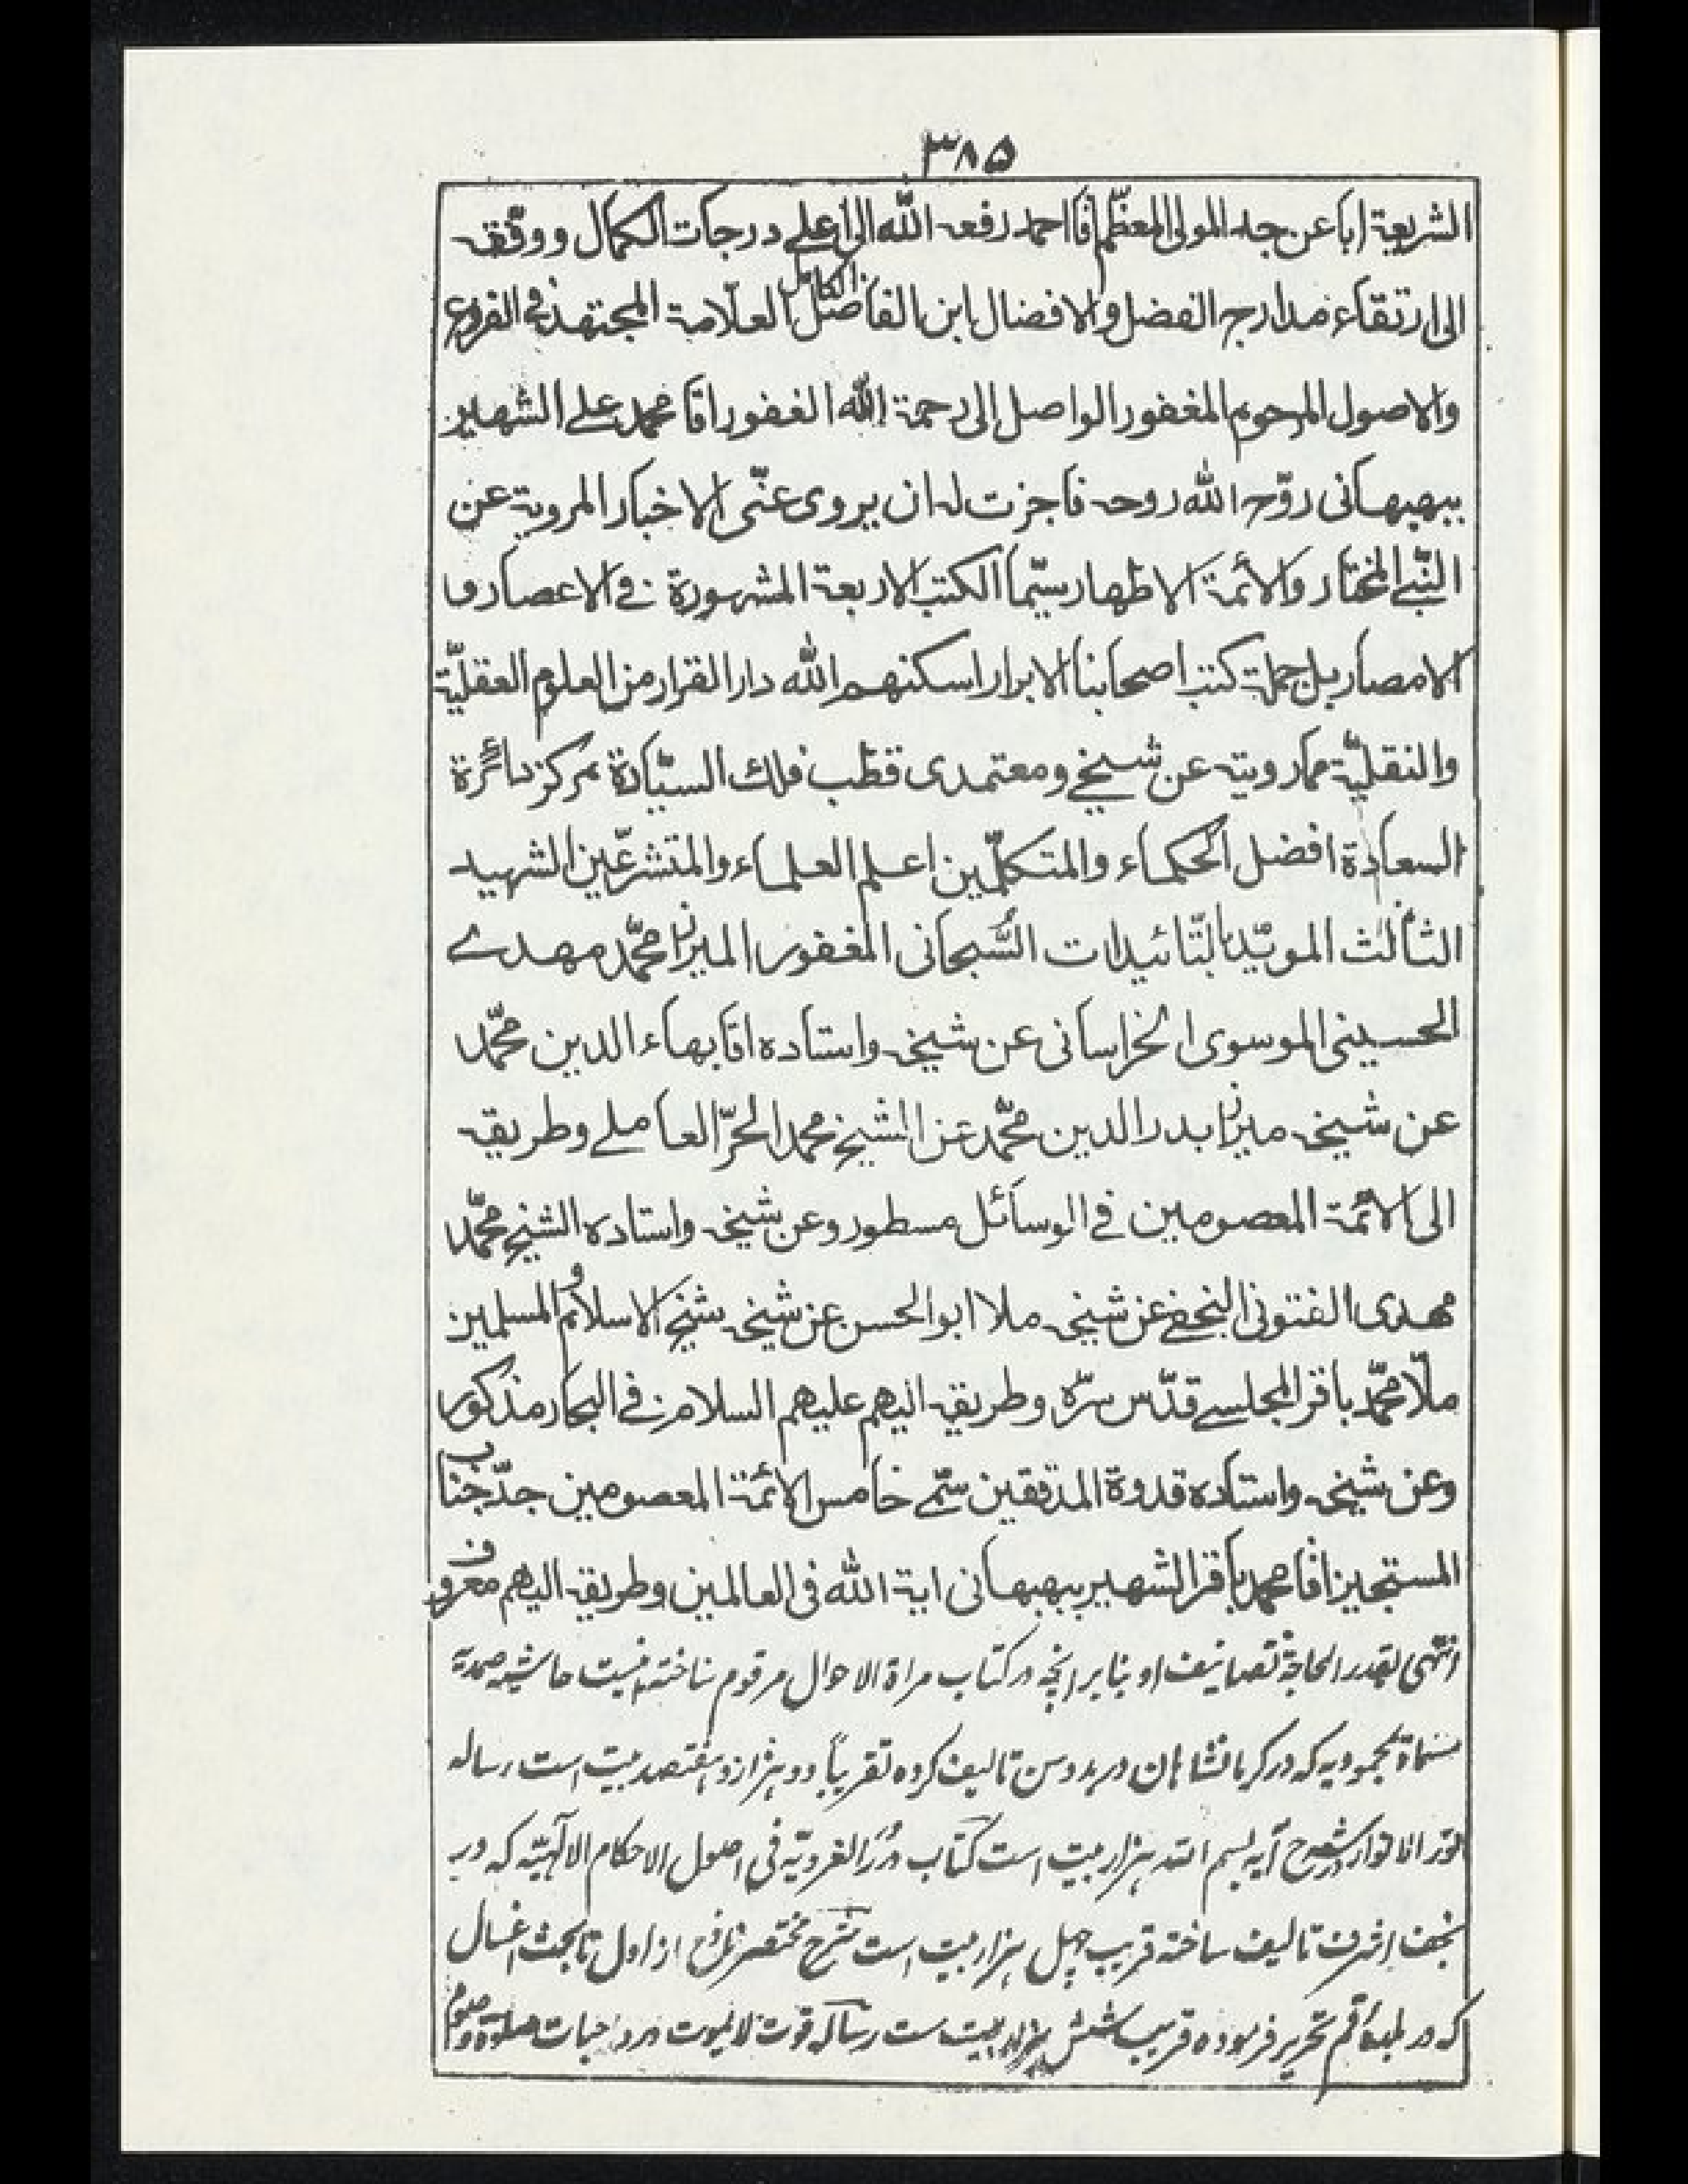 ٣٨٥
الشريعة ابا عن جد المولى المعظّم اقا احمد رفعه الله الى اعلى درجات الكمال ووفّقه
الى ارتقاء مدارج الفضل والافضال ابن الفاضل الكامل العلّامة المجتهد فى الفروع
والاصول المرحوم المغفور الواصل الى رحمة الله الغفور اقا محمد على الشهير
ببهبهانى روّح الله روحه فاجزت له ان يروى عنّى الاخبار المروية عن
النّبى المختار والأئمة الاطهار سيّما الكتب الاربعة المشهورة فى الاعصار و
الامصار بل جملة كتب اصحابنا الابرار اسكنهم الله دار القرار من العلوم العقليّة
والنقليّة مما رويته عن شيخى ومعتمدى قطب فلك السيّادة مركز دائرة
السعادة افضل الحكماء والمتكلّمين اعلم العلماء والمتشرعّين الشهيد
الثالث المويّد بالتّائيدات السّبحانى المغفور الميرزا محمّد مهدى
الحسينى الموسوى الخراسانى عن شيخه واستاده اقا بهاء الدين محمّد
عن شيخه ميرزا بدر الدين محمّد عن الشيخ محمد الحرّ العاملى وطريقه
الى الائمّة المعصومين فى الوسائل مسطور وعن شيخه واستاده الشيخ محمّد
مهدى الفتونى النجفى عن شيخه ملا ابو الحسن عن شيخه شيخ الاسلام و المسلمين
ملّا محمّد باقر المجلسى قدّس سرّه وطريقه اليهم عليهم السلام فى البحار مذكور
وعن شيخه واستاده قدوة المدققين سمّى خامس الائمّة المعصومين جدّ جناب
المستجيز اقا محمد باقر الشهير ببهبهانى اية الله فى العالمين وطريقه اليهم معروف
انتهى بقدر الحاجة تصانيف او بنابر انچه در كتاب مراة الاحوال مرقوم ساخته اينست حاشيه صمديّة
مسماة بمحموديه كه در كرمانشاهان در بدو سن تاليف كرده تقريباً دو هزار و هفتصد بيت است رساله
نور الانوار در شرح آيه بسم الله هزار بيت است كتاب درر الغرويّه فى اصول الاحكام الالٓهيّه كه در
نجف اشرف تاليف ساخته قريب چهل هزار بيت است شرح مختصر نافع از اول تا بحث اغسال
كه در بلده قم تحرير فرموده قريب شش هزار بيت ست رساله قوت لا يموت در واجبات صلوة و صوم